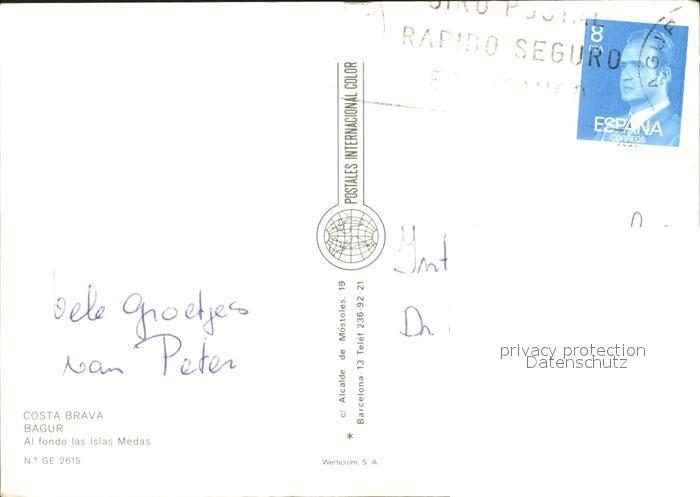 GIRO POSTAL
RAPIDO SEGURO
8
PTA
ESPAÑA
CORREOS
BAGUR
POSTALES INTERNACIONAL COLOR
vele Groetjes
van Peter
Dr.
privacy protection
Datenschutz
c/ Alcalde de Móstoles, 19
Barcelona-13 Teléf. 236-92-21
*
COSTA BRAVA
BAGUR
Al fondo las Islas Medas
N.º GE 2615
Werticrom, S A